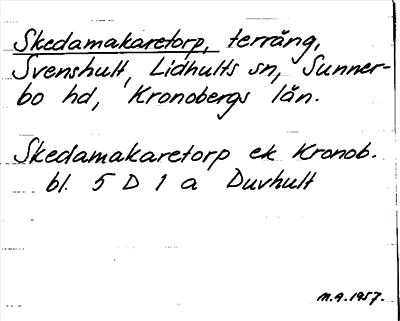 Skedamakaretorp, terräng,
Svenshult, Lidhults sn, Sunner-
bo hd, Kronobergs län.
Skedamakaretorp ek Kronob.
bl. 5 D 1 a Duvhult
M.A. 1957.